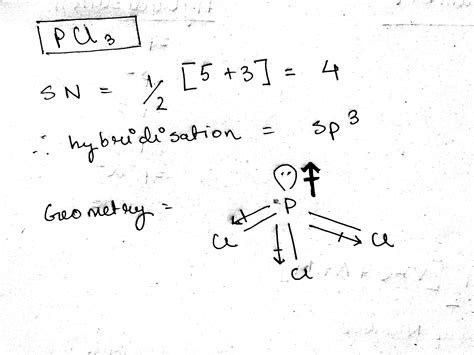 PCl3
SN = 1/2 [5 + 3] = 4
∴ hybridisation = sp3
Geometry =
P
Cl
Cl
Cl